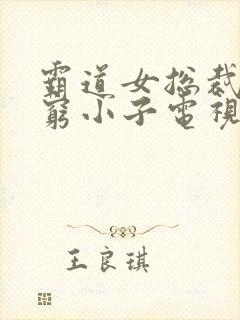 霸道女总裁
窮小子電視
王良琪